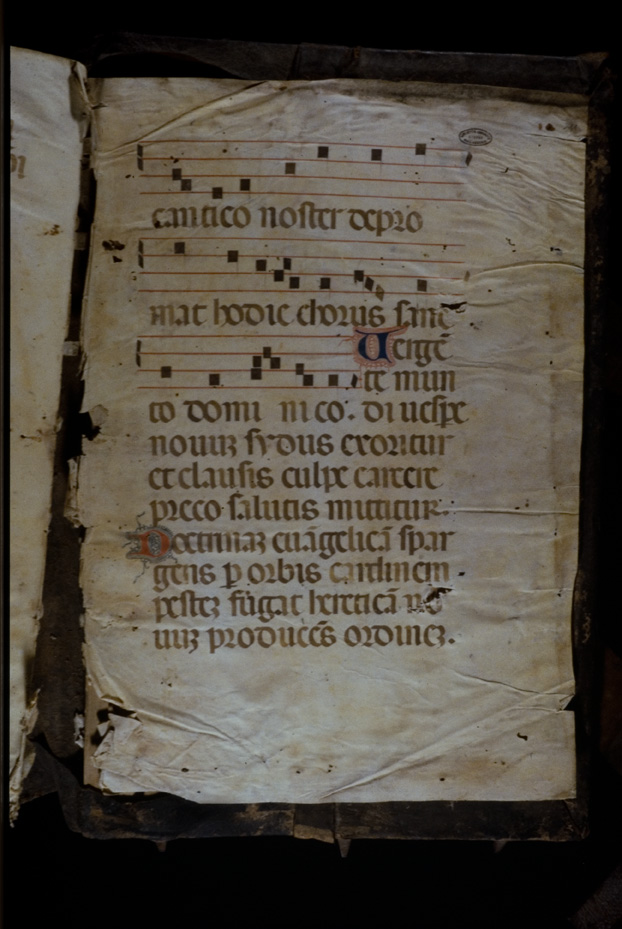 cantico noster depro
mat hodie chorus sanc
Uergē
te mun
to domi nico. di uespe
nouuȝ sydus exoritur
et clausis culpe carcere
preco salutis mittitur.
Doctrinaȝ euāgelicā spar
gens p orbis cardinem
pesteȝ fugat hereticā no
uuȝ producēs ordineȝ.